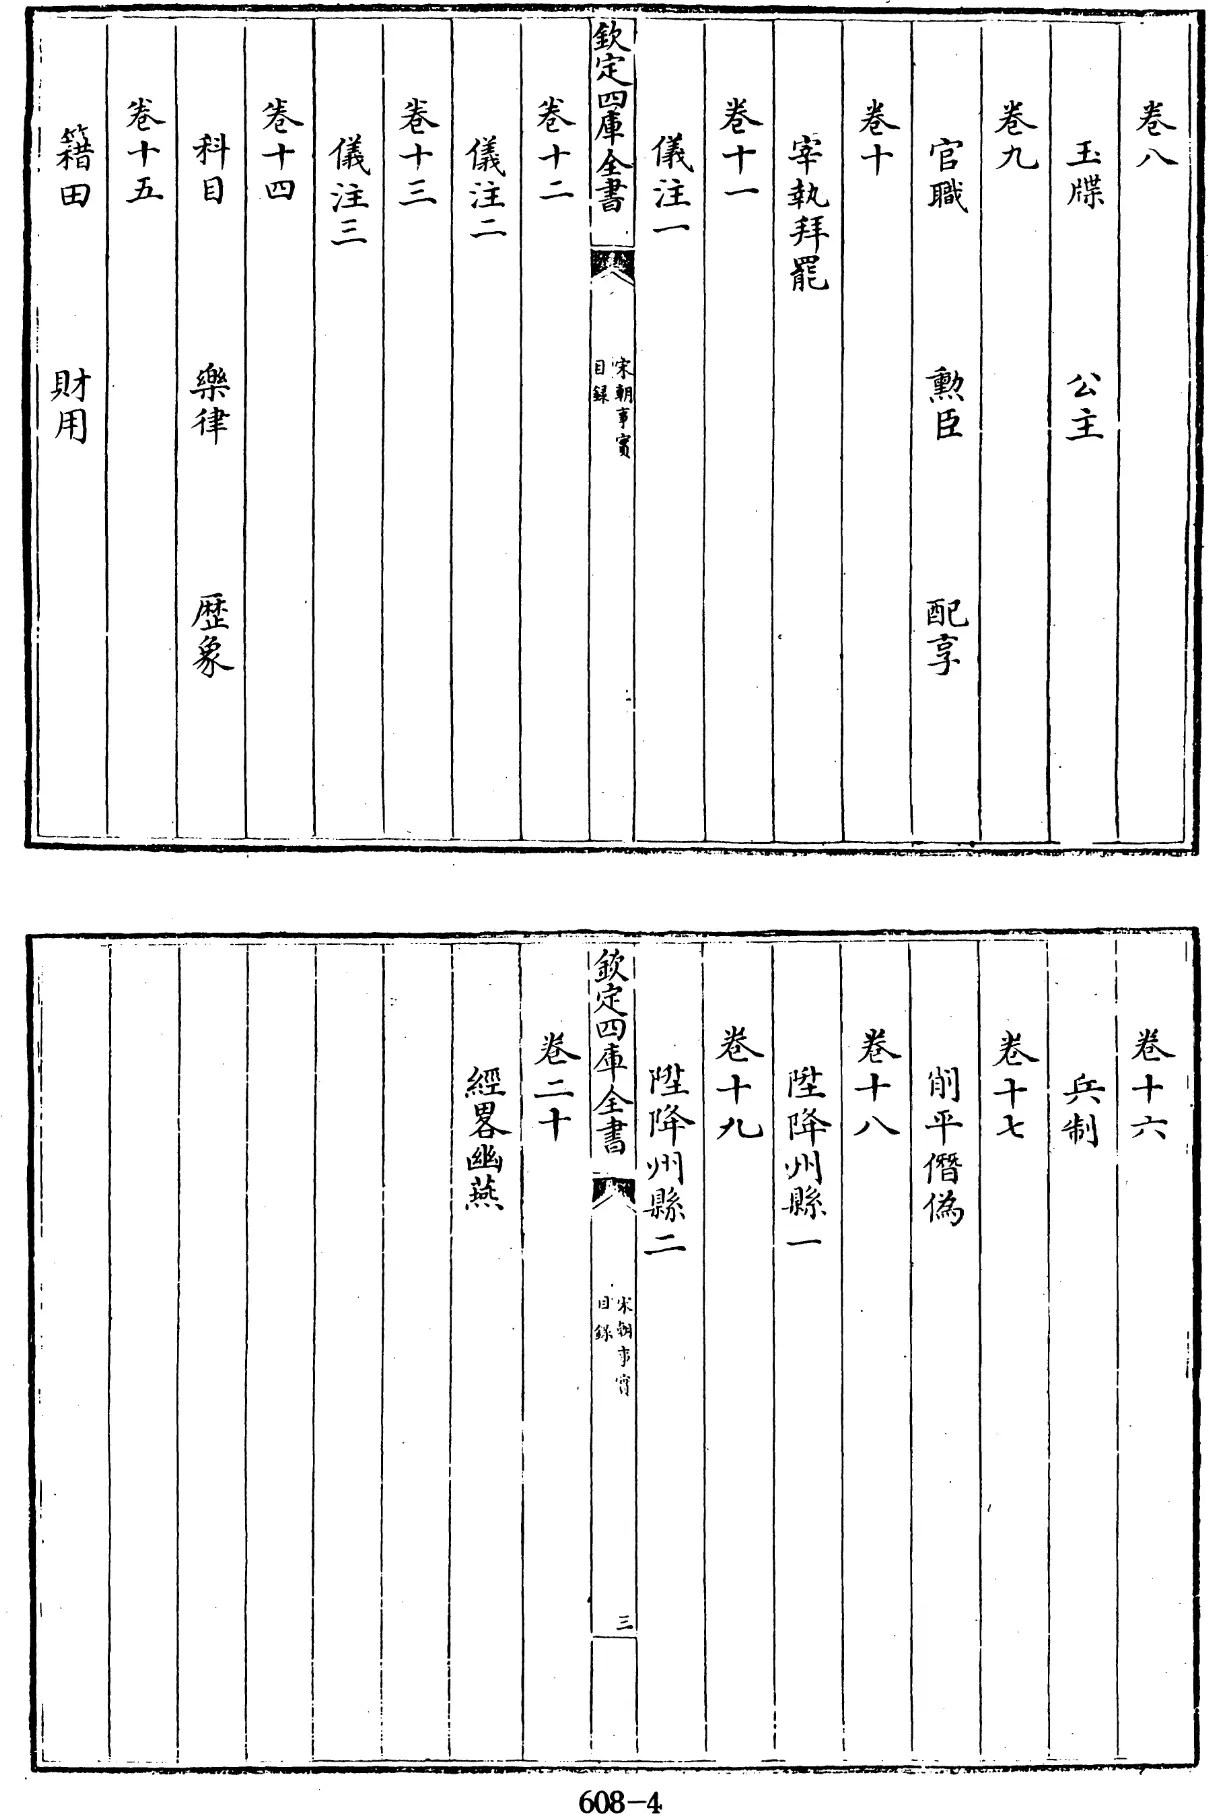 卷八
玉牒　公主
卷九
官職　勲臣　配享
卷十
宰執拜罷
卷十一
儀注一
欽定四庫全書
宋朝事實
目録
卷十二
儀注二
卷十三
儀注三
卷十四
科目　樂律　歴象
卷十五
籍田　財用
卷十六
兵制
卷十七
削平僭偽
卷十八
陞降州縣一
卷十九
陞降州縣二
欽定四庫全書
宋朝事實
目録
三
卷二十
經畧幽燕
608-4